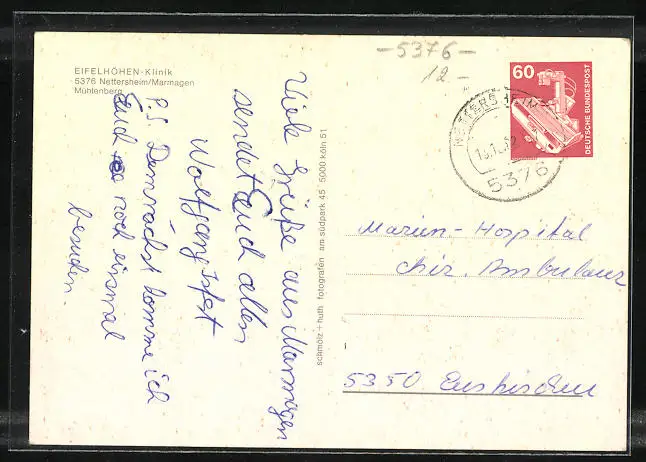 EIFELHÖHEN-Klinik
5376 Nettersheim/Marmagen
Mühlenberg
Viele Grüße aus Marmagen
sendet Euch allen
Wolfgang
P.S. Demnächst komme ich
Euch noch einmal
besuchen.
schmölz + huth fotografen am südpark 45 5000 köln 51
-5376-
12-
60
DEUTSCHE BUNDESPOST
NETTERSHEIM
5376
Marien-Hospital
chir. Ambulanz
5350 Euskirchen